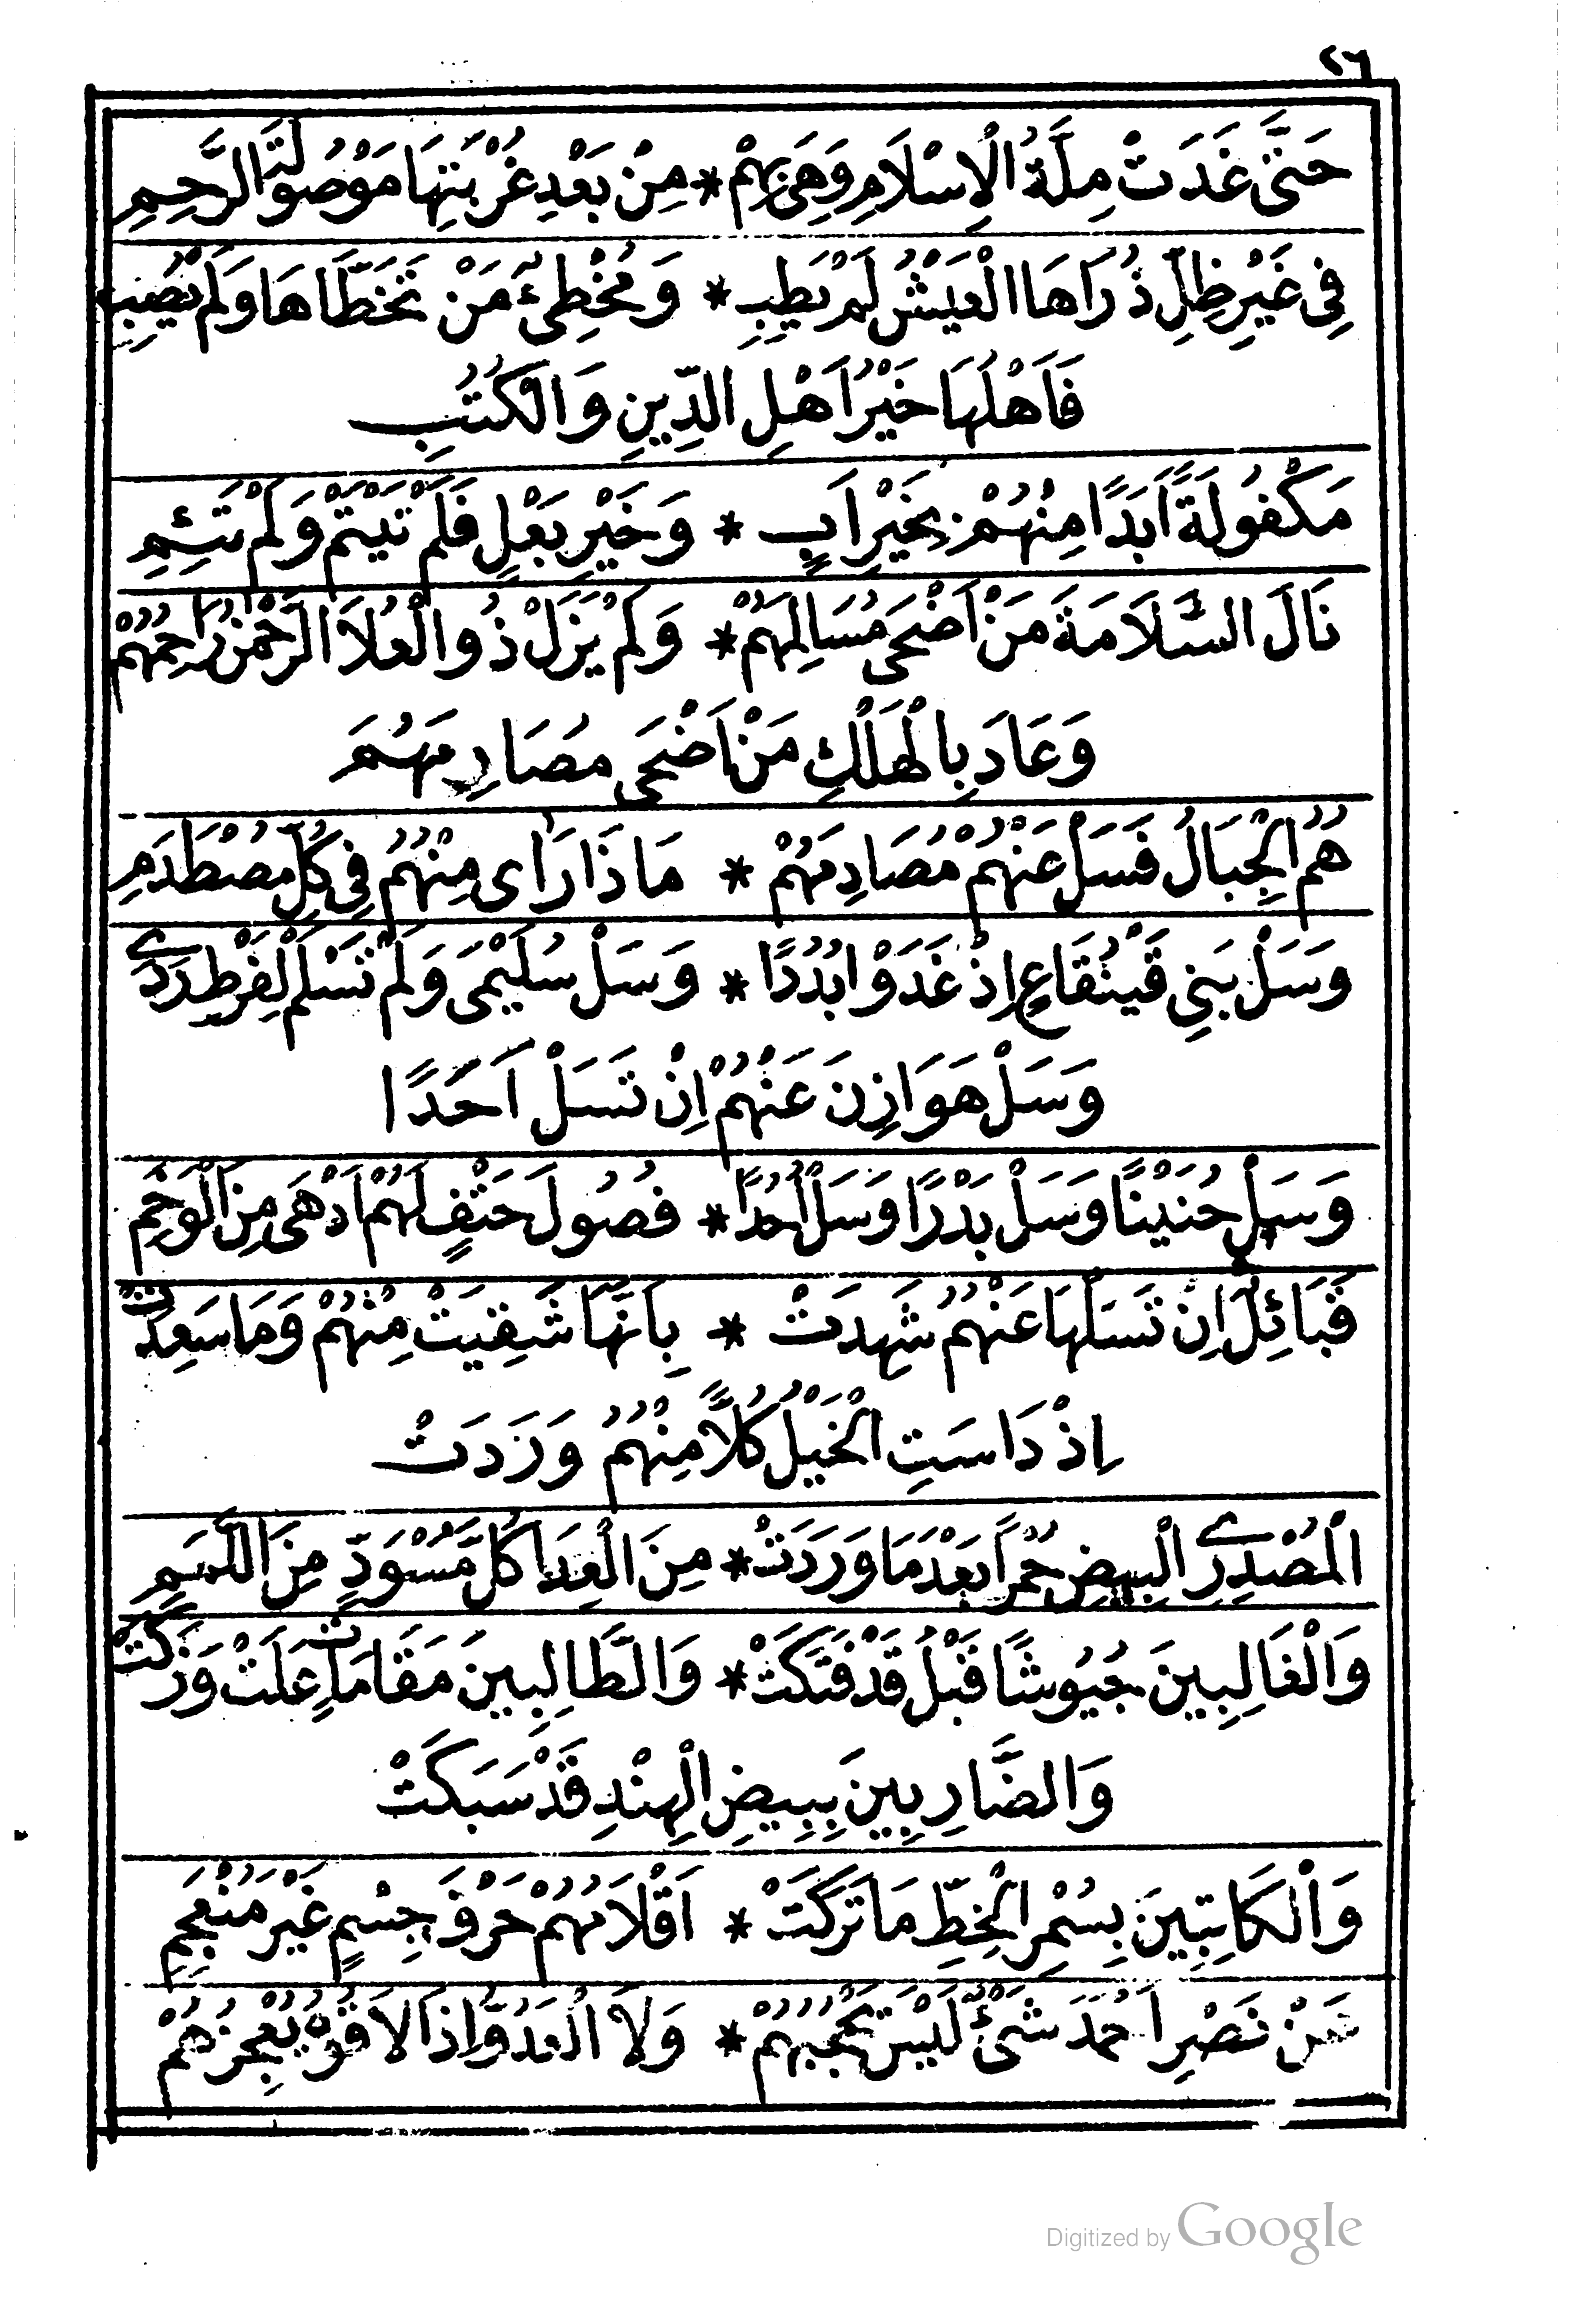 ٢٦
حَتَّى غَدَتْ مِلَّةُ الْاِسْلَامِ وَهِىَ بِهِمْ * مِنْ بَعْدِ غُرْبَتِهَا مَوْصُولَةَ الرَّحِمِ
فِى غَيْرِ ظِلِّ ذُرَاهَا الْعَيْشُ لَمْ يَطِبِ * وَمُخْطِئٌ مَنْ تَخَطَّاهَا وَلَمْ يُصِبِ
فَاَهْلُهَا خَيْرُ اَهْلِ الدِّينِ وَالْكُتُبِ
مَكْفُولَةً اَبَدًا مِنْهُمْ بِخَيْرِ اَبٍ * وَخَيْرِ بَعْلٍ فَلَمْ تَيْتَمْ وَلَمْ تَئِمِ
نَالَ السَّلَامَةَ مَنْ اَضْحَى مُسَالِمَهُمْ * وَلَمْ يَزَلْ ذُو الْعُلَا الرَّحْمٰنُ رَاحِمَهُمْ
وَعَادَ بِالْهَلْكِ مَنْ اَضْحَى مُصَادِمَهُمْ
هُمُ الْجِبَالُ فَسَلْ عَنْهُمْ مُصَادِمَهُمْ * مَاذَا رَاَى مِنْهُمُ فِى كُلِّ مُصْطَدَمِ
وَسَلْ بَنِى قَيْنُقَاعٍ اِذْ غَدَوْا بُدُدًا * وَسَلْ سُلَيْمَى وَلَمْ تَسْلَمْ لِفَرْطِ رَدَى
وَسَلْ هَوَازِنَ عَنْهُمْ اِنْ تَسَلْ اَحَدًا
وَسَلْ حُنَيْنًا وَسَلْ بَدْرًا وَسَلْ اُحُدًا * فُصُولَ حَتْفٍ لَهُمْ اَدْهَى مِنَ الْوَخَمِ
قَبَائِلٌ اِنْ تَسَلْهَا عَنْهُمُ شَهِدَتْ * بِاَنَّهَا شَقِيَتْ مِنْهُمْ وَمَا سَعِدَتْ
اِذْ دَاسَتِ الْخَيْلُ كُلًّا مِنْهُمُ وَرَدَتْ
اَلْمُصْدِرِى الْبِيضِ حُمْرًا بَعْدَ مَا وَرَدَتْ * مِنَ الْعِدَا كُلَّ مُسْوَدٍّ مِنَ اللَّمَمِ
وَالْغَالِبِينَ جُيُوشًا قَبْلُ قَدْ فَتَكَتْ * وَالطَّالِبِينَ مَقَامَاتٍ عَلَتْ وَزَكَتْ
وَالضَّارِبِينَ بِبِيضِ الْهِنْدِ قَدْ سَبَكَتْ
وَالْكَاتِبِينَ بِسُمْرِ الْخَطِّ مَا تَرَكَتْ * اَقْلَامُهُمْ حَرْفَ جِسْمٍ غَيْرَ مُنْعَجِمِ
عَنْ نَصْرِ اَحْمَدَ شَىْءٌ لَيْسَ يَحْجُبُهُمْ * وَلَا الْعَدُوُّ اِذَا لَاقَوْهُ يُعْجِزُهُمْ
Digitized by Google